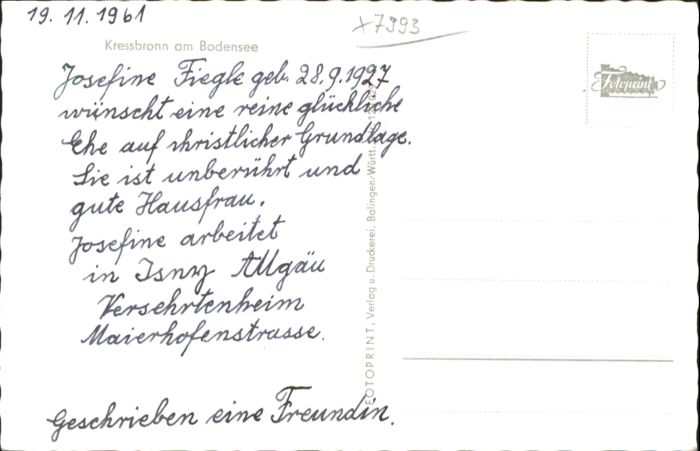 19. 11. 1961
x7393
Kressbronn am Bodensee
Fotoprint
Josefine Fiegle geb. 28.9.1927
wünscht eine reine glückliche
Ehe auf christlicher Grundlage.
Sie ist unberührt und
gute Hausfrau.
Josefine arbeitet
in Isny Allgäu
Versehrtenheim
Maierhofenstrasse.
Geschrieben eine Freundin.
FOTOPRINT, Verlag u. Druckerei, Balingen/Württ.